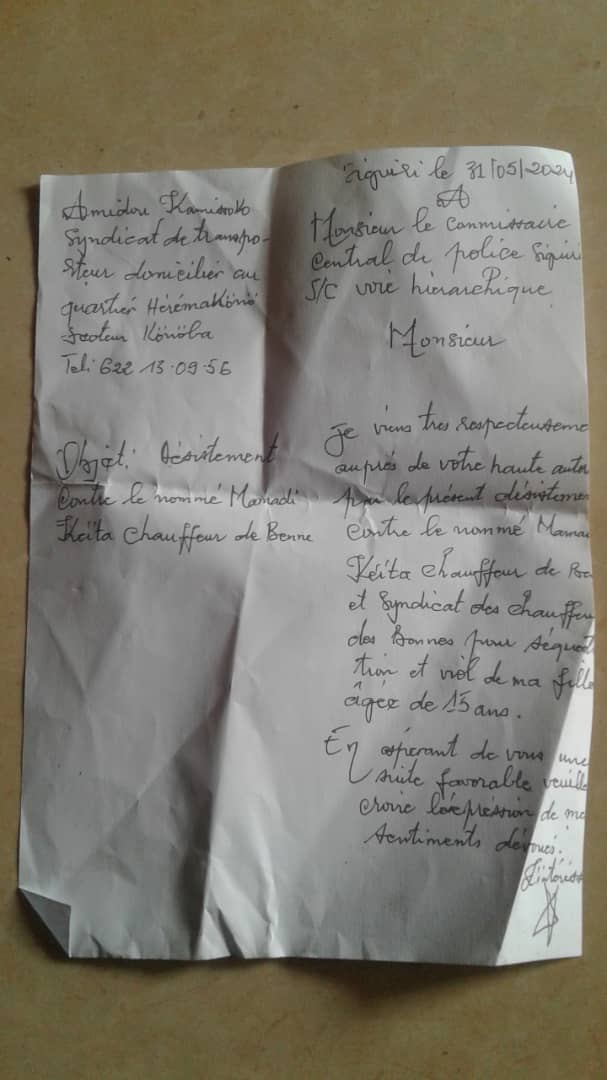 Siguiri le 31/05/2024
Amidou Kamissoko
Syndicat de transpo-
rteur domicilier au
quartier Hérémakönö
Secteur Könöba
Tel: 622 13.09.56
A
Monsieur le Commissaire
Central de police Siguiri
S/C voie hierarchique
Monsieur
Objet: Désistement
contre le nommé Mamadi
Keïta Chauffeur de Benne
Je viens tres respecteuseme
auprés de votre haute autor
par le présent désisteme
Contre le nommé Mama
Kéita Chauffeur de Be
et Syndicat des Chauffeu
des Bennes pour séquest
tion et viol de ma fille
âgée de 15 ans.
En espérant de vous une
suite favorable veuille
croire l'expression de me
sentiments dévoués.
L'intéress